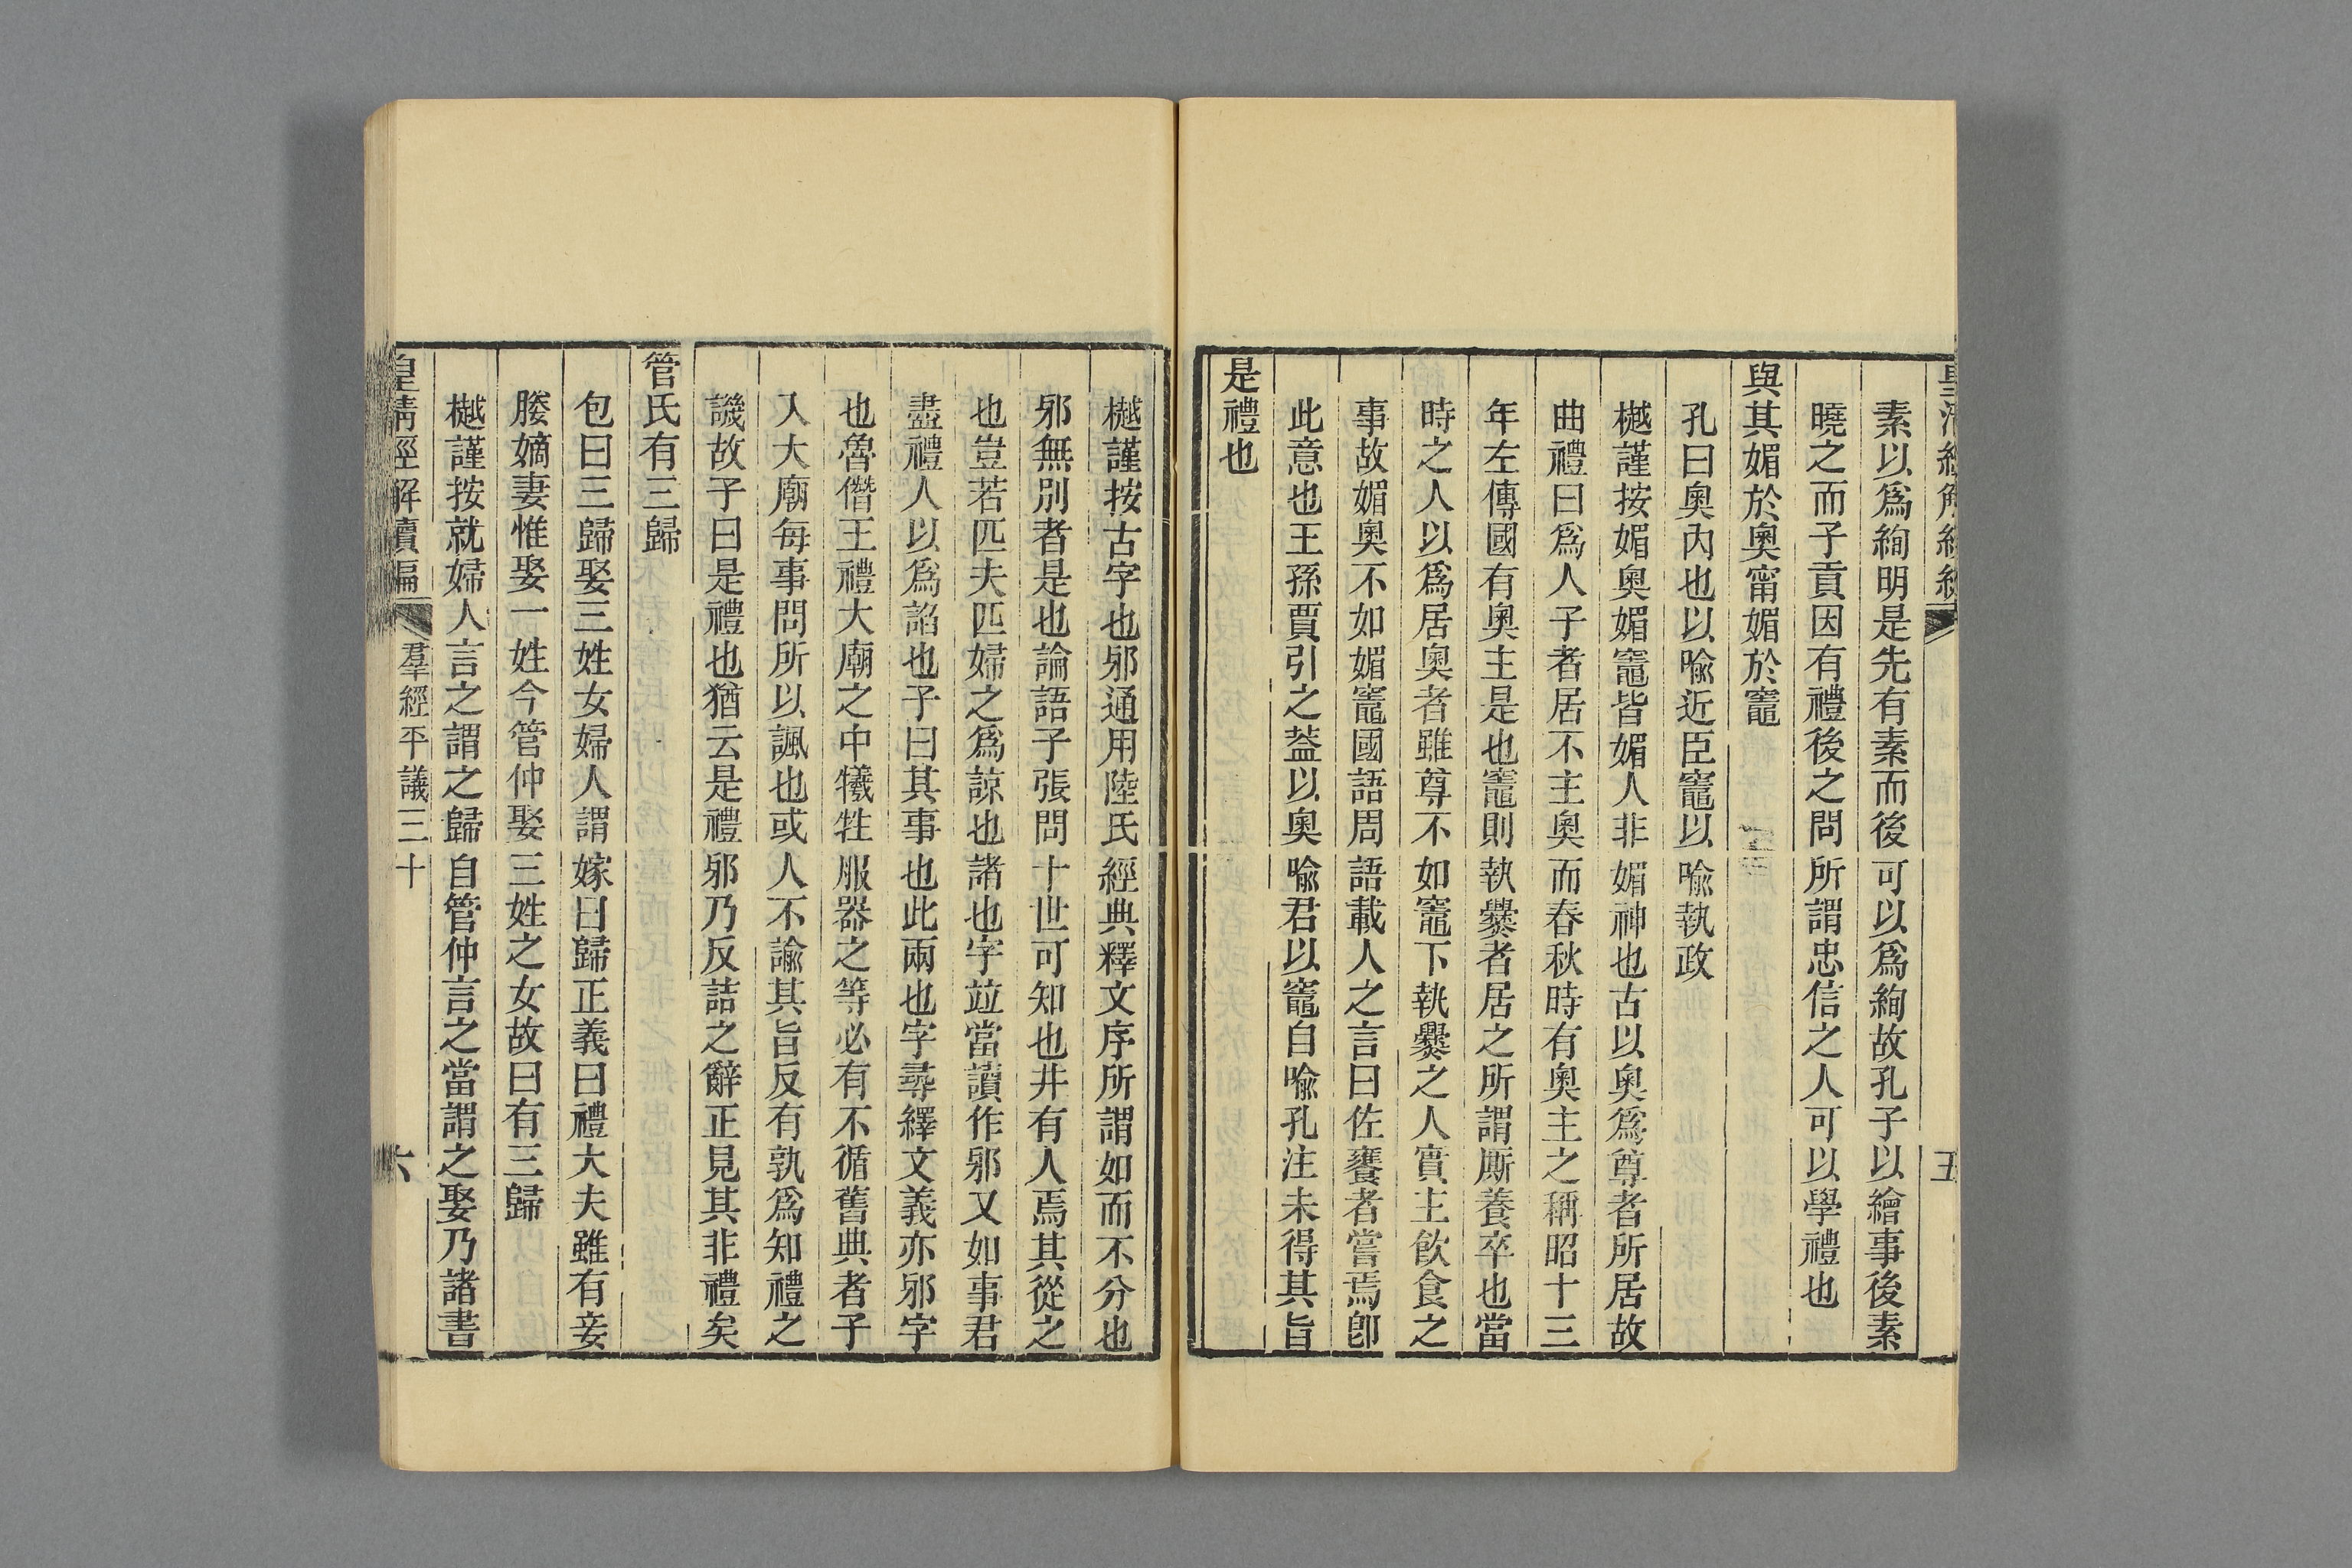 素以爲絢明是先有素而後可以爲絢故孔子以繪事後素
曉之而子貢因有禮後之問所謂忠信之人可以學禮也
與其媚於奧甯媚於竈
孔曰奧內也以喩近臣竈以喩執政
樾謹按媚奧媚竈皆媚人非媚神也古以奧爲尊者所居故
曲禮曰爲人子者居不主奧而春秋時有奧主之稱昭十三
年左傳國有奧主是也竈則執爨者居之所謂厮養卒也當
時之人以爲居奧者雖尊不如竈下執爨之人實主飮食之
事故媚奧不如媚竈國語周語載人之言曰佐饔者嘗焉卽
此意也王孫賈引之葢以奧喩君以竈自喩孔注未得其旨
是禮也
樾謹按古字也邪通用陸氏經典釋文序所謂如而不分也
邪無別者是也論語子張問十世可知也井有人焉其從之
也豈若匹夫匹婦之爲諒也諸也字竝當讀作邪又如事君
盡禮人以爲諂也子曰其事也此兩也字尋繹文義亦邪字
也魯僭王禮大廟之中犧牲服器之等必有不循舊典者子
入大廟每事問所以諷也或人不諭其旨反有孰爲知禮之
譏故子曰是禮也猶云是禮邪乃反詰之辭正見其非禮矣
管氏有三歸
包曰三歸娶三姓女婦人謂嫁曰歸正義曰禮大夫雖有妾
媵嫡妻惟娶一姓今管仲娶三姓之女故曰有三歸
樾謹按就婦人言之謂之歸自管仲言之當謂之娶乃諸書
皇淸經解續編 羣經平議三十 六